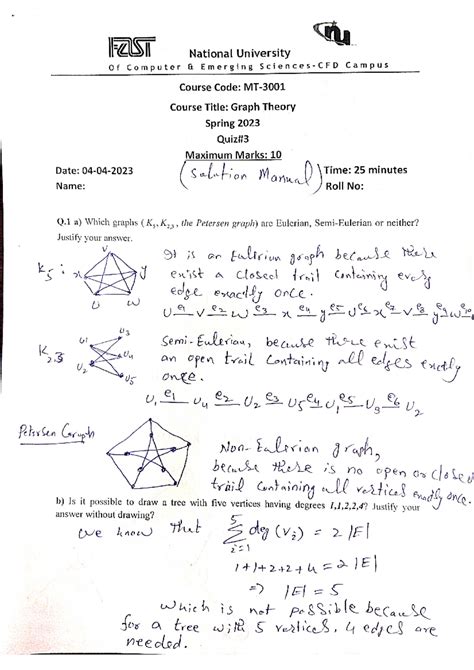 FAST
nu
National University
Of Computer & Emerging Sciences-CFD Campus
Course Code: MT-3001
Course Title: Graph Theory
Spring 2023
Quiz#3
Maximum Marks: 10
(Solution Manual)
Date: 04-04-2023 Time: 25 minutes
Name: Roll No:
Q.1 a) Which graphs (K5, K2,3, the Petersen graph) are Eulerian, Semi-Eulerian or neither?
Justify your answer.
It is an Eulirian graph because there
exist a closed trail containing every
edge exactly once.
K5 :
v
x
y
u
w
u e1 v e2 w e3 x e4 y e5 u e6 x e7 v e8 y e9 w e10 u
K2,3
u1
u2
u3
u4
u5
Semi-Eulerian, because there exist
an open trail containing all edges exactly
once.
u1 e1 u4 e2 u2 e3 u5 e4 u1 e5 u3 e6 u2
Petersen Graph
Non-Eulerian graph,
because there is no open or closed
trail containing all vertices exactly once.
b) Is it possible to draw a tree with five vertices having degrees 1,1,2,2,4? Justify your
answer without drawing?
we know that 5 Σ i=1 deg (vi) = 2|E|
1+1+2+2+4 = 2|E|
=> |E| = 5
which is not possible because
for a tree with 5 vertices, 4 edges are
needed.